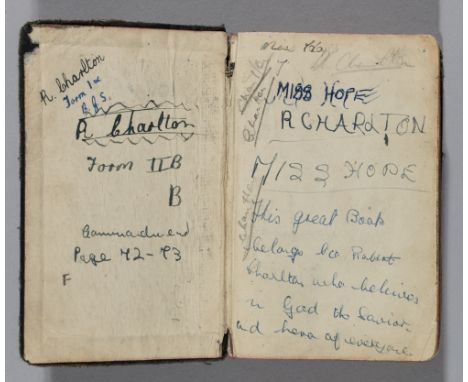 R. Charlton
Form 1a
R Charlton
Form IIB
B
Page 72-73
F
Miss
Charlton
MISS HOPE
R CHARLTON
MISS HOPE
This great Book
belongs to Robert
Charlton who believes
in God the Saviour
and hero of everyone.